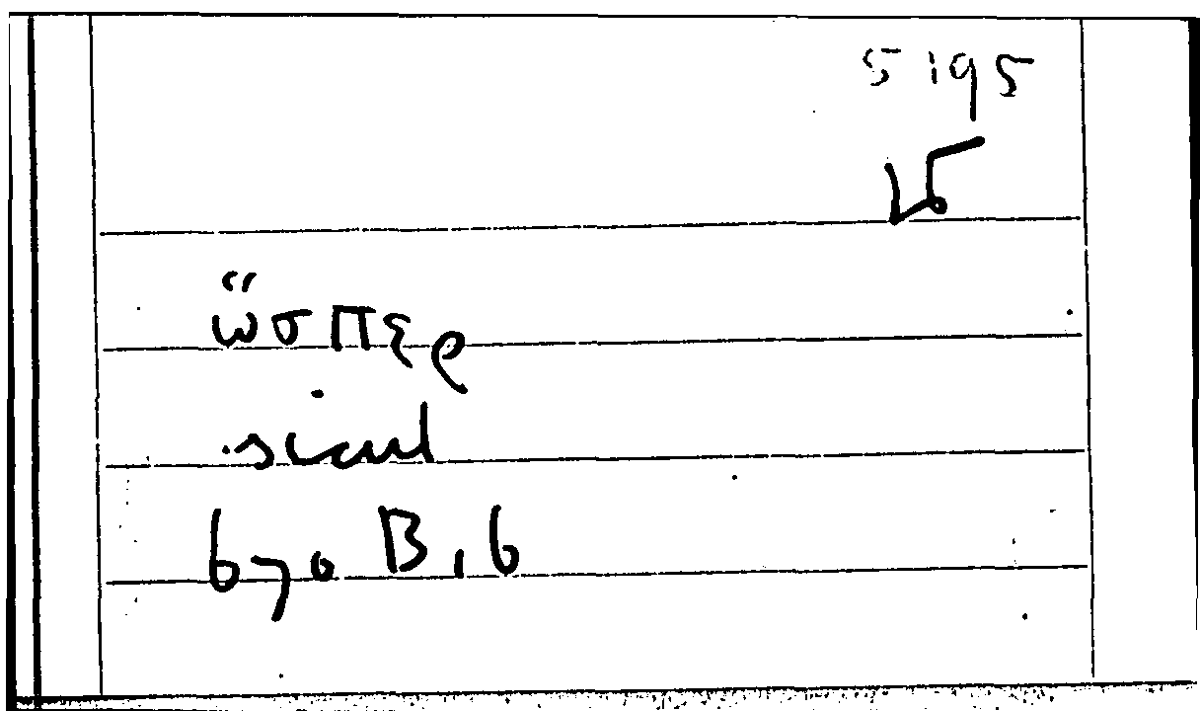 5195
ὥσπερ
sicut
670 B, 6